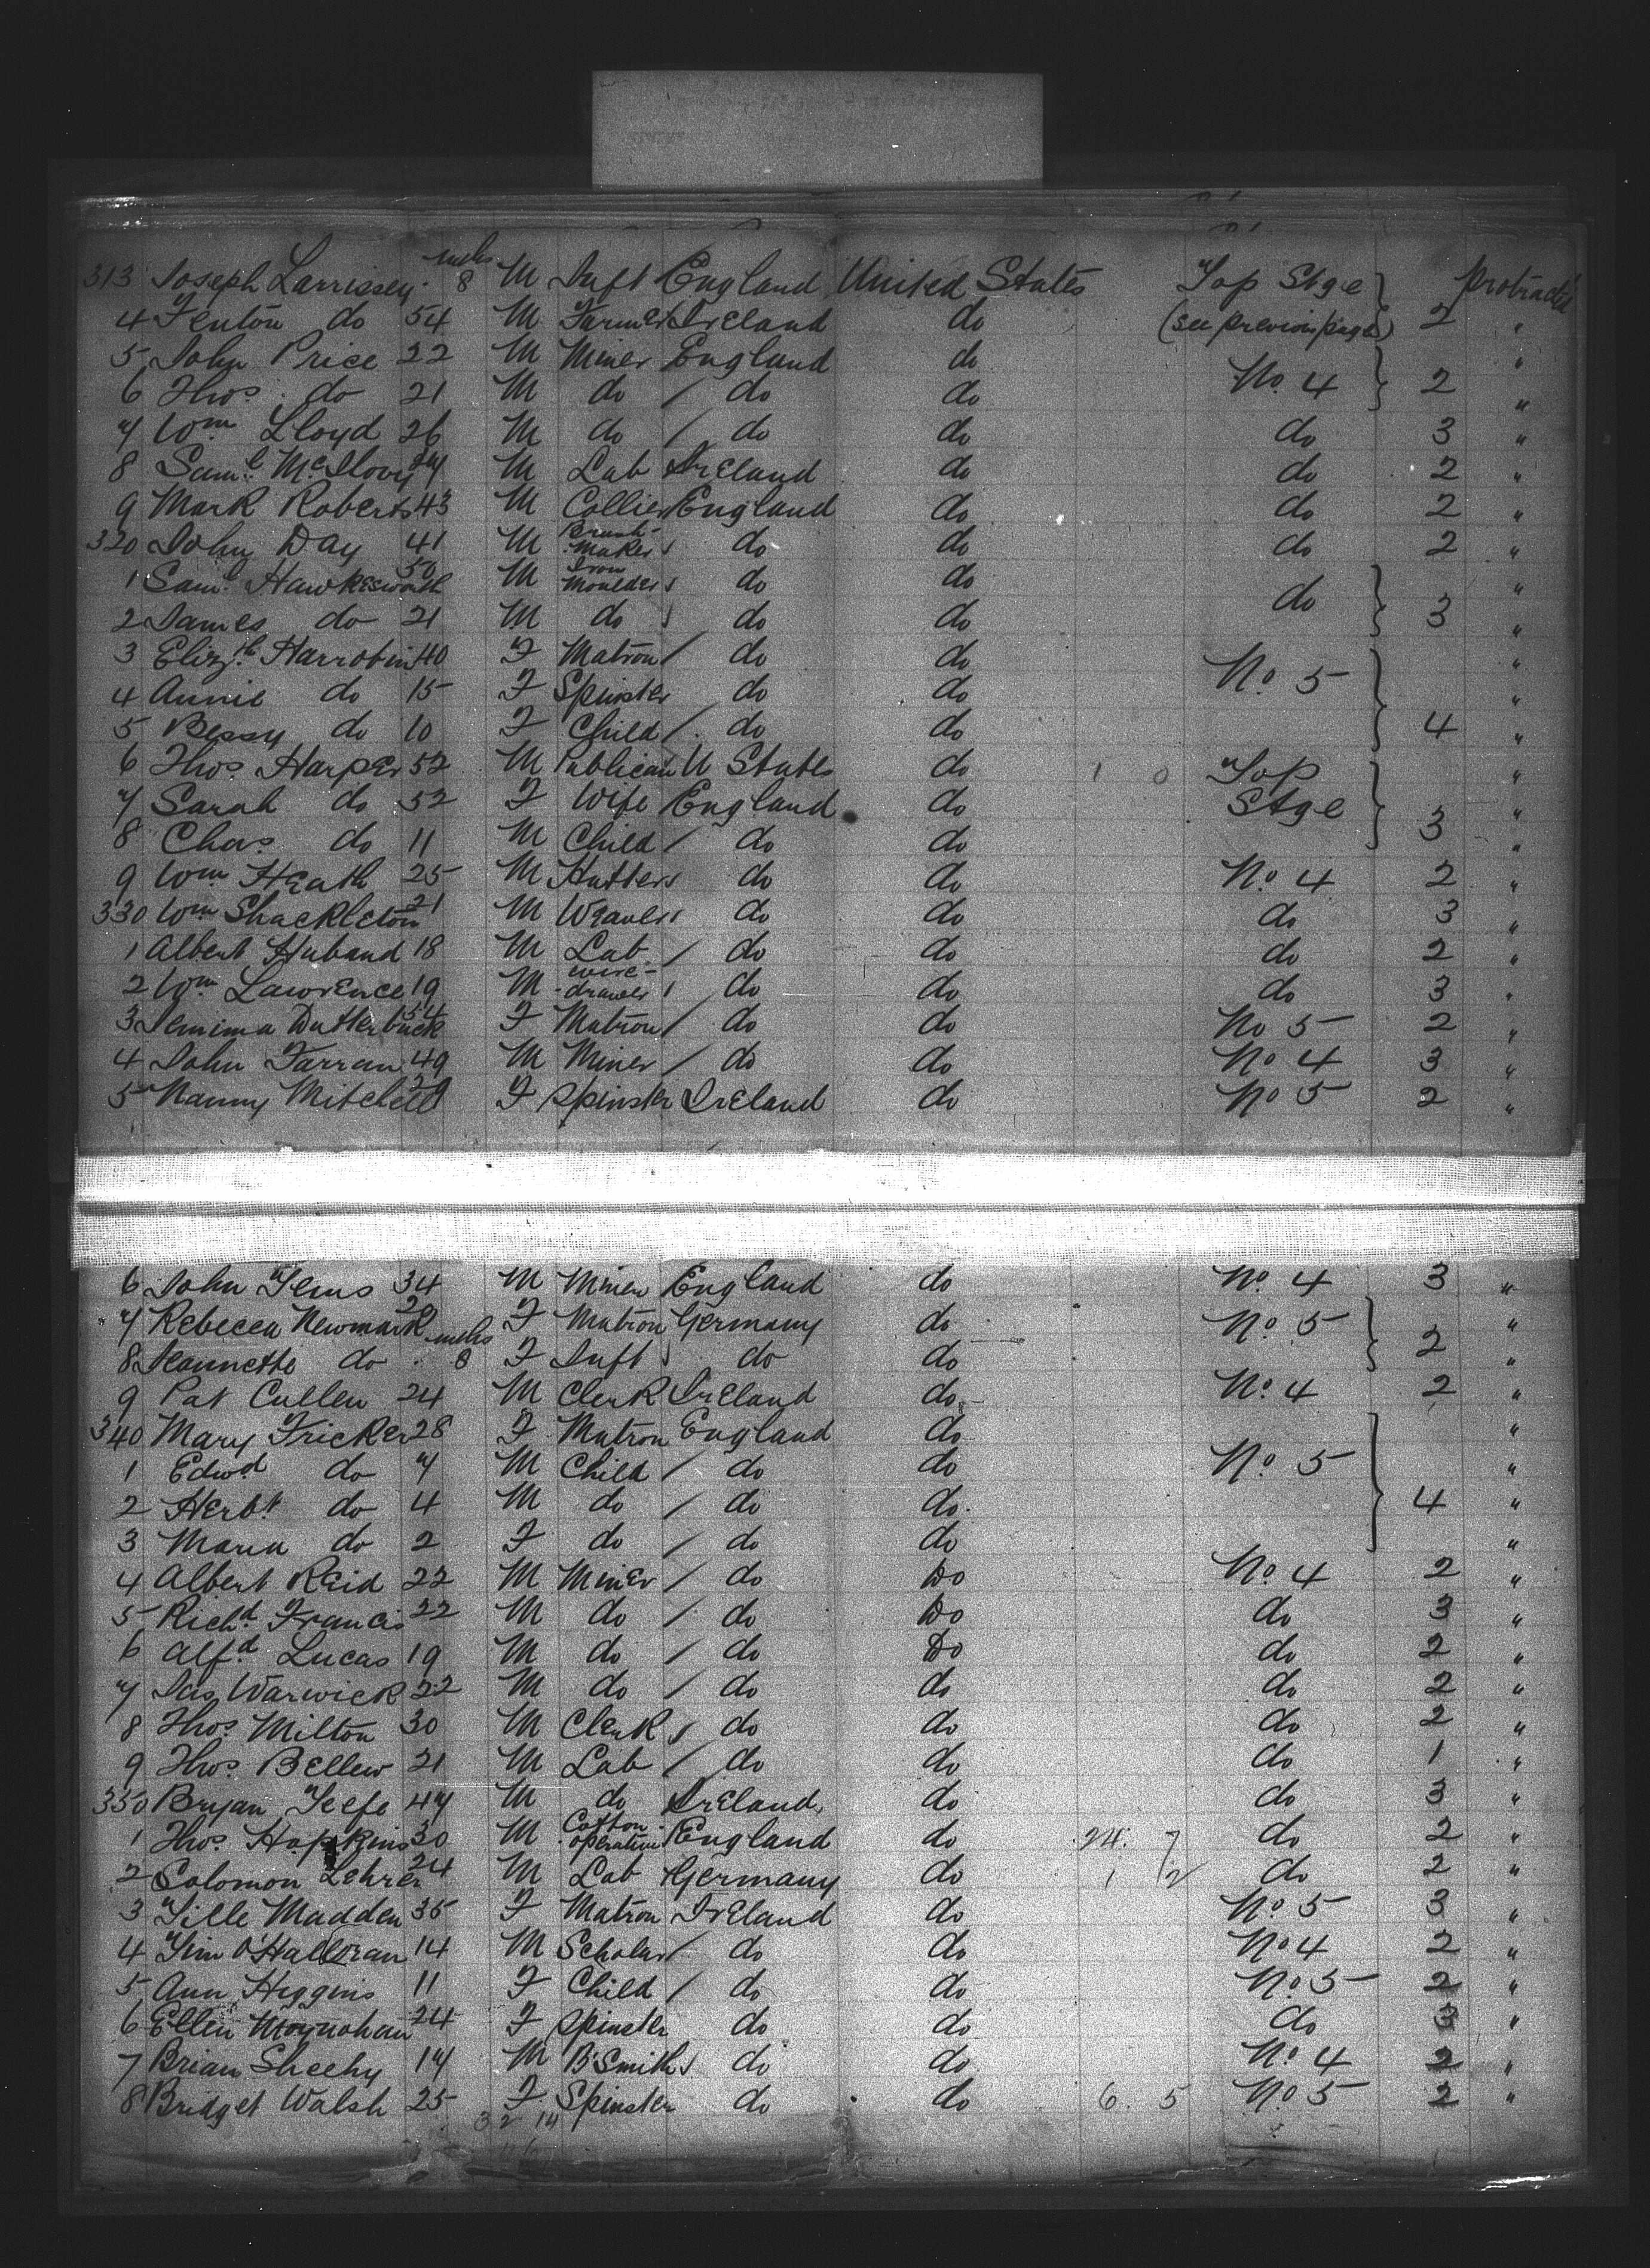 313 Joseph Larrissey mths 8 M Inft England United States Top Stge protracted
4 Fenton do 54 M Farmer Ireland do (see previous page) 2 "
5 John Price 22 M Miner England do "
6 Thos. do 21 M do / do do No. 4 2 "
7 Wm Lloyd 26 M do / do do do 3 "
8 Saml. M M Lab Ireland do do 2 "
9 Mark Roberts 43 M Collier England do do 2 "
320 John Day 41 M Brush-maker do do do 2 "
1 Saml. Hawkesworth 50 M Iron Moulder do do "
2 James do 21 M do do do do 3 "
3 Elizth Harrobin 40 F Matron / do do No. 5 "
4 Annie do 15 F Spinster do do "
5 Bessy do 10 F Child / do do 4 "
6 Thos. Harper 52 M Publican U States do 1 0 Top "
7 Sarah do 52 F Wife England do Stge "
8 Chas. do 11 M Child / do do 3 "
9 Wm Heath 25 M Hatter do do No. 4 2 "
330 Wm Shackleton 21 M Weaver do do do 3 "
1 Albert Huband 18 M Lab. / do do do 2 "
2 Wm Lawrence 19 M wire-drawer / do do do 3 "
3 Jemima 54 F Matron / do do No 5 2 "
4 John Farran 49 M Miner / do do No 4 3 "
5 Nanny Mitchell 29 F Spinster Ireland do No 5 2 "
6 John Tems 34 M Miner England do No. 4 3 "
7 Rebecca Newmark 20 F Matron Germany do No. 5 "
8 Jeannette do mths 8 F Inft do do 2 "
9 Pat Cullen 24 M Clerk Ireland do No. 4 2 "
340 Mary Fricker 28 F Matron England do "
1 Edwd do 7 M Child / do do No. 5 "
2 Herbt. do 4 M do / do do 4 "
3 Maria do 2 F do / do do "
4 Albert Reid 22 M Miner / do Do No. 4 2 "
5 Richd. Francis 22 M do / do Do do 3 "
6 Alfd. Lucas 19 M do / do Do do 2 "
7 Jas Warwick 22 M do / do do do 2 "
8 Thos. Milton 30 M Clerk do do do 2 "
9 Thos. Bellew 21 M Lab / do do do 1 "
350 Bryan Teefe 47 M do Ireland do do 3 "
1 Thos. Hopkins 30 M Cotton operative England do 24. 7 do 2 "
2 Solomon Lehrer 24 M Lab Germany do 1 2 do 2 "
3 Tille Madden 35 F Matron Ireland do No. 5 3 "
4 Tim O'Halloran 14 M Scholar / do do No 4 2 "
5 Ann Higgins 11 F Child / do do No. 5 2 "
6 Ellen Moynahan 24 F Spinster do do do 3 "
7 Brian Sheehy 17 M B Smith do do No. 4 2 "
8 Bridget Walsh 25 F Spinster do do 6. 5 No. 5 2 "
32 14